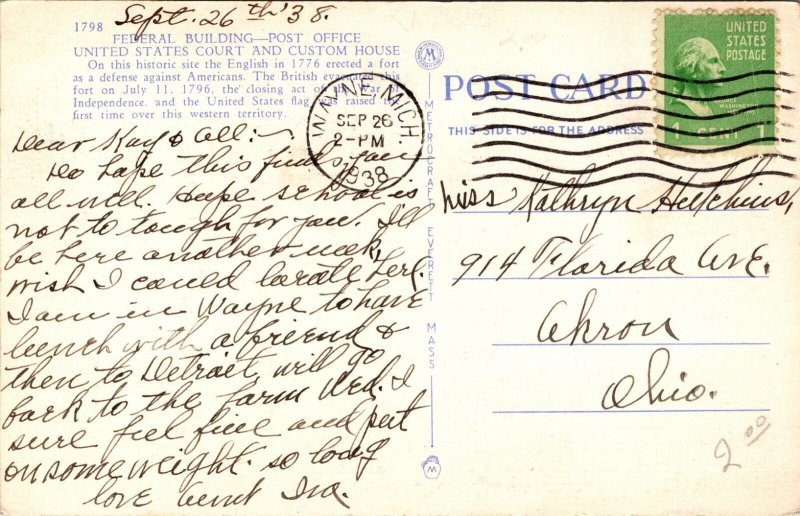 Sept. 26th '38.
1798
FEDERAL BUILDING—POST OFFICE
UNITED STATES COURT AND CUSTOM HOUSE
On this historic site the English in 1776 erected a fort
as a defense against Americans. The British evacuated this
fort on July 11, 1796, the closing act of the War of
Independence, and the United States flag was raised the
first time over this western territory.
Dear Kay & all:~
Do hope this finds you
all well. Hope school is
not to tough for you. I'll
be here another week,
wish I could locate here.
I am in Wayne to have
lunch with a friend &
then to Detroit, will go
back to the farm Wed. I
sure feel fine and put
on some weight. so long
love Aunt Ira.
WAYNE, MICH.
SEP 26
2-PM
1938
METROCRAFT EVERETT MASS
M
POST CARD
THIS SIDE IS FOR THE ADDRESS
UNITED
STATES
POSTAGE
GEORGE
WASHINGTON
1 CENT 1
Miss Kathryn Hutchins,
914 Florida Ave.
Akron
Ohio.
2.00